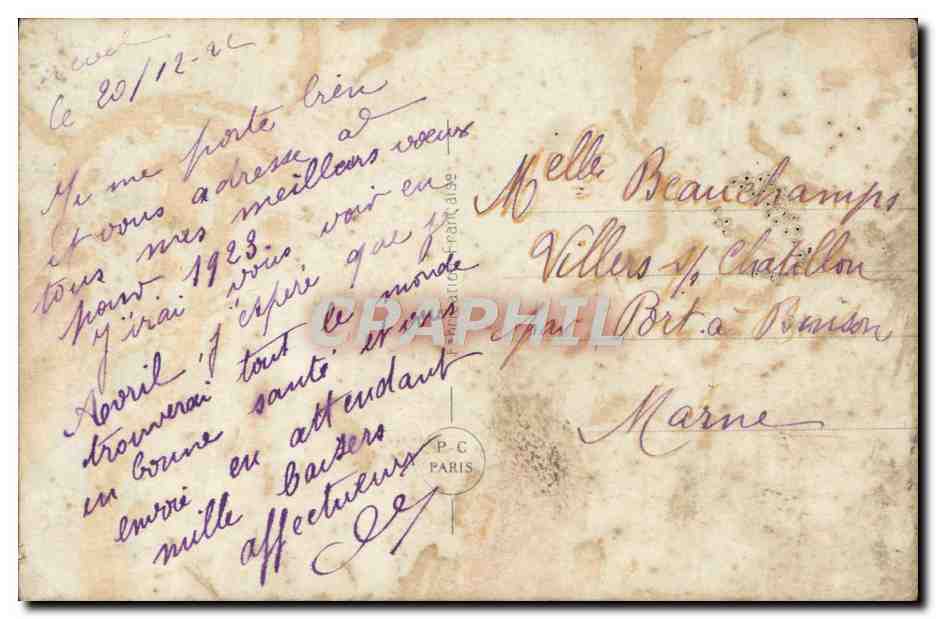 le 20/12-22
Je me porte bien
et vous adresse à
tous mes meilleurs vœux
pour 1923
j'irai vous voir en
Avril j'espère que je
trouverai tout le monde
en bonne santé et vous
envoie en attendant
mille baisers
affectueux
Melle Beauchamps
Villers s/ Chatillon
par Port. à Binson
Marne
Fabrication Française
P-C
PARIS
CRAPHIL